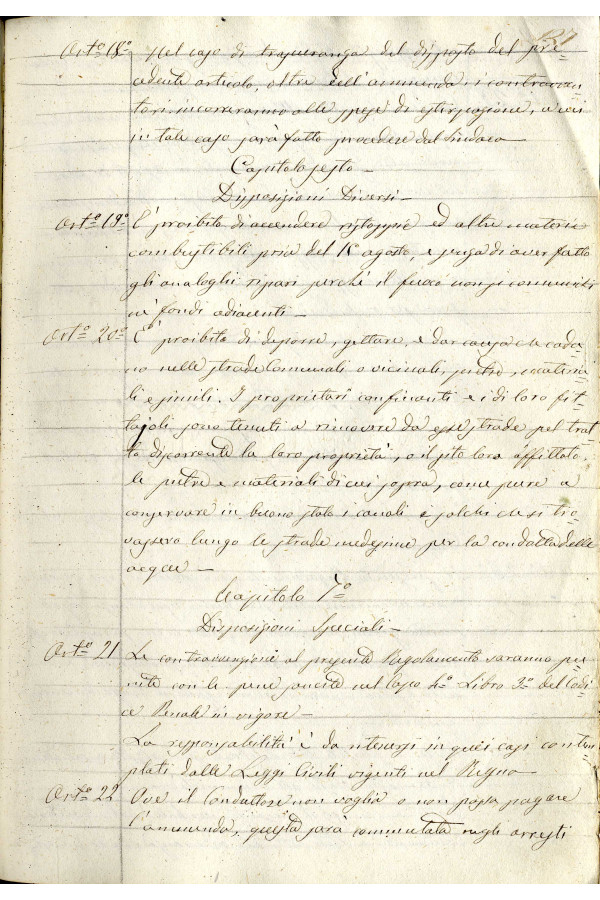 127
Art.º 18º Nel caso di trascuranza del disposto del pre-
cedente articolo, oltre dell'ammenda i contravven-
tori incorreranno alle spese di estirpazione, a cui
in tale caso sarà fatto procedere dal Sindaco —
Capitolo sesto —
Disposizioni Diversi —
Art.º 19º È proibito di accendere ristoppie ed altre materie
combustibili pria del 1º agosto, e senza di aver fatto
gli analoghi ripari perchè il fuoco non si comunichi
ne' fondi adiacenti —
Art.º 20º È proibito di deporre, gettare, e dar causa che cada-
no nelle strade Comunali o vicinali, pietre, materia-
li e simili. I proprietari confinanti e i di loro fit-
tajoli sono tenuti a rimuovere da esse strade pel trat-
to discorrente la loro proprietà, o il sito loro affittato,
le pietre e materiali di cui sopra, come pure a
conservare in buono stato i canali e solchi che si tro-
vassero lungo le strade medesime per la condotta delle
acque —
Capitolo 7º
Disposizioni Speciali —
Art.º 21 Le contravvenzioni al presente Regolamento saranno pu-
nite con le pene sancite nel Capo 4º Libro 3º del Codi-
ce Penale in vigore —
La responsabilità è da ritenersi in quei casi contem-
plati dalle Leggi Civili vigenti nel Regno —
Art.º 22 Ove il Conduttore non voglia o non possa pagare
l'ammenda, questa sarà commutata negli arresti